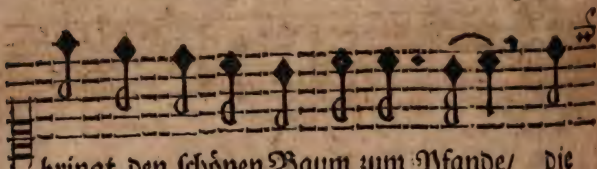 bringt den schönen Baum zum Pfande/ die